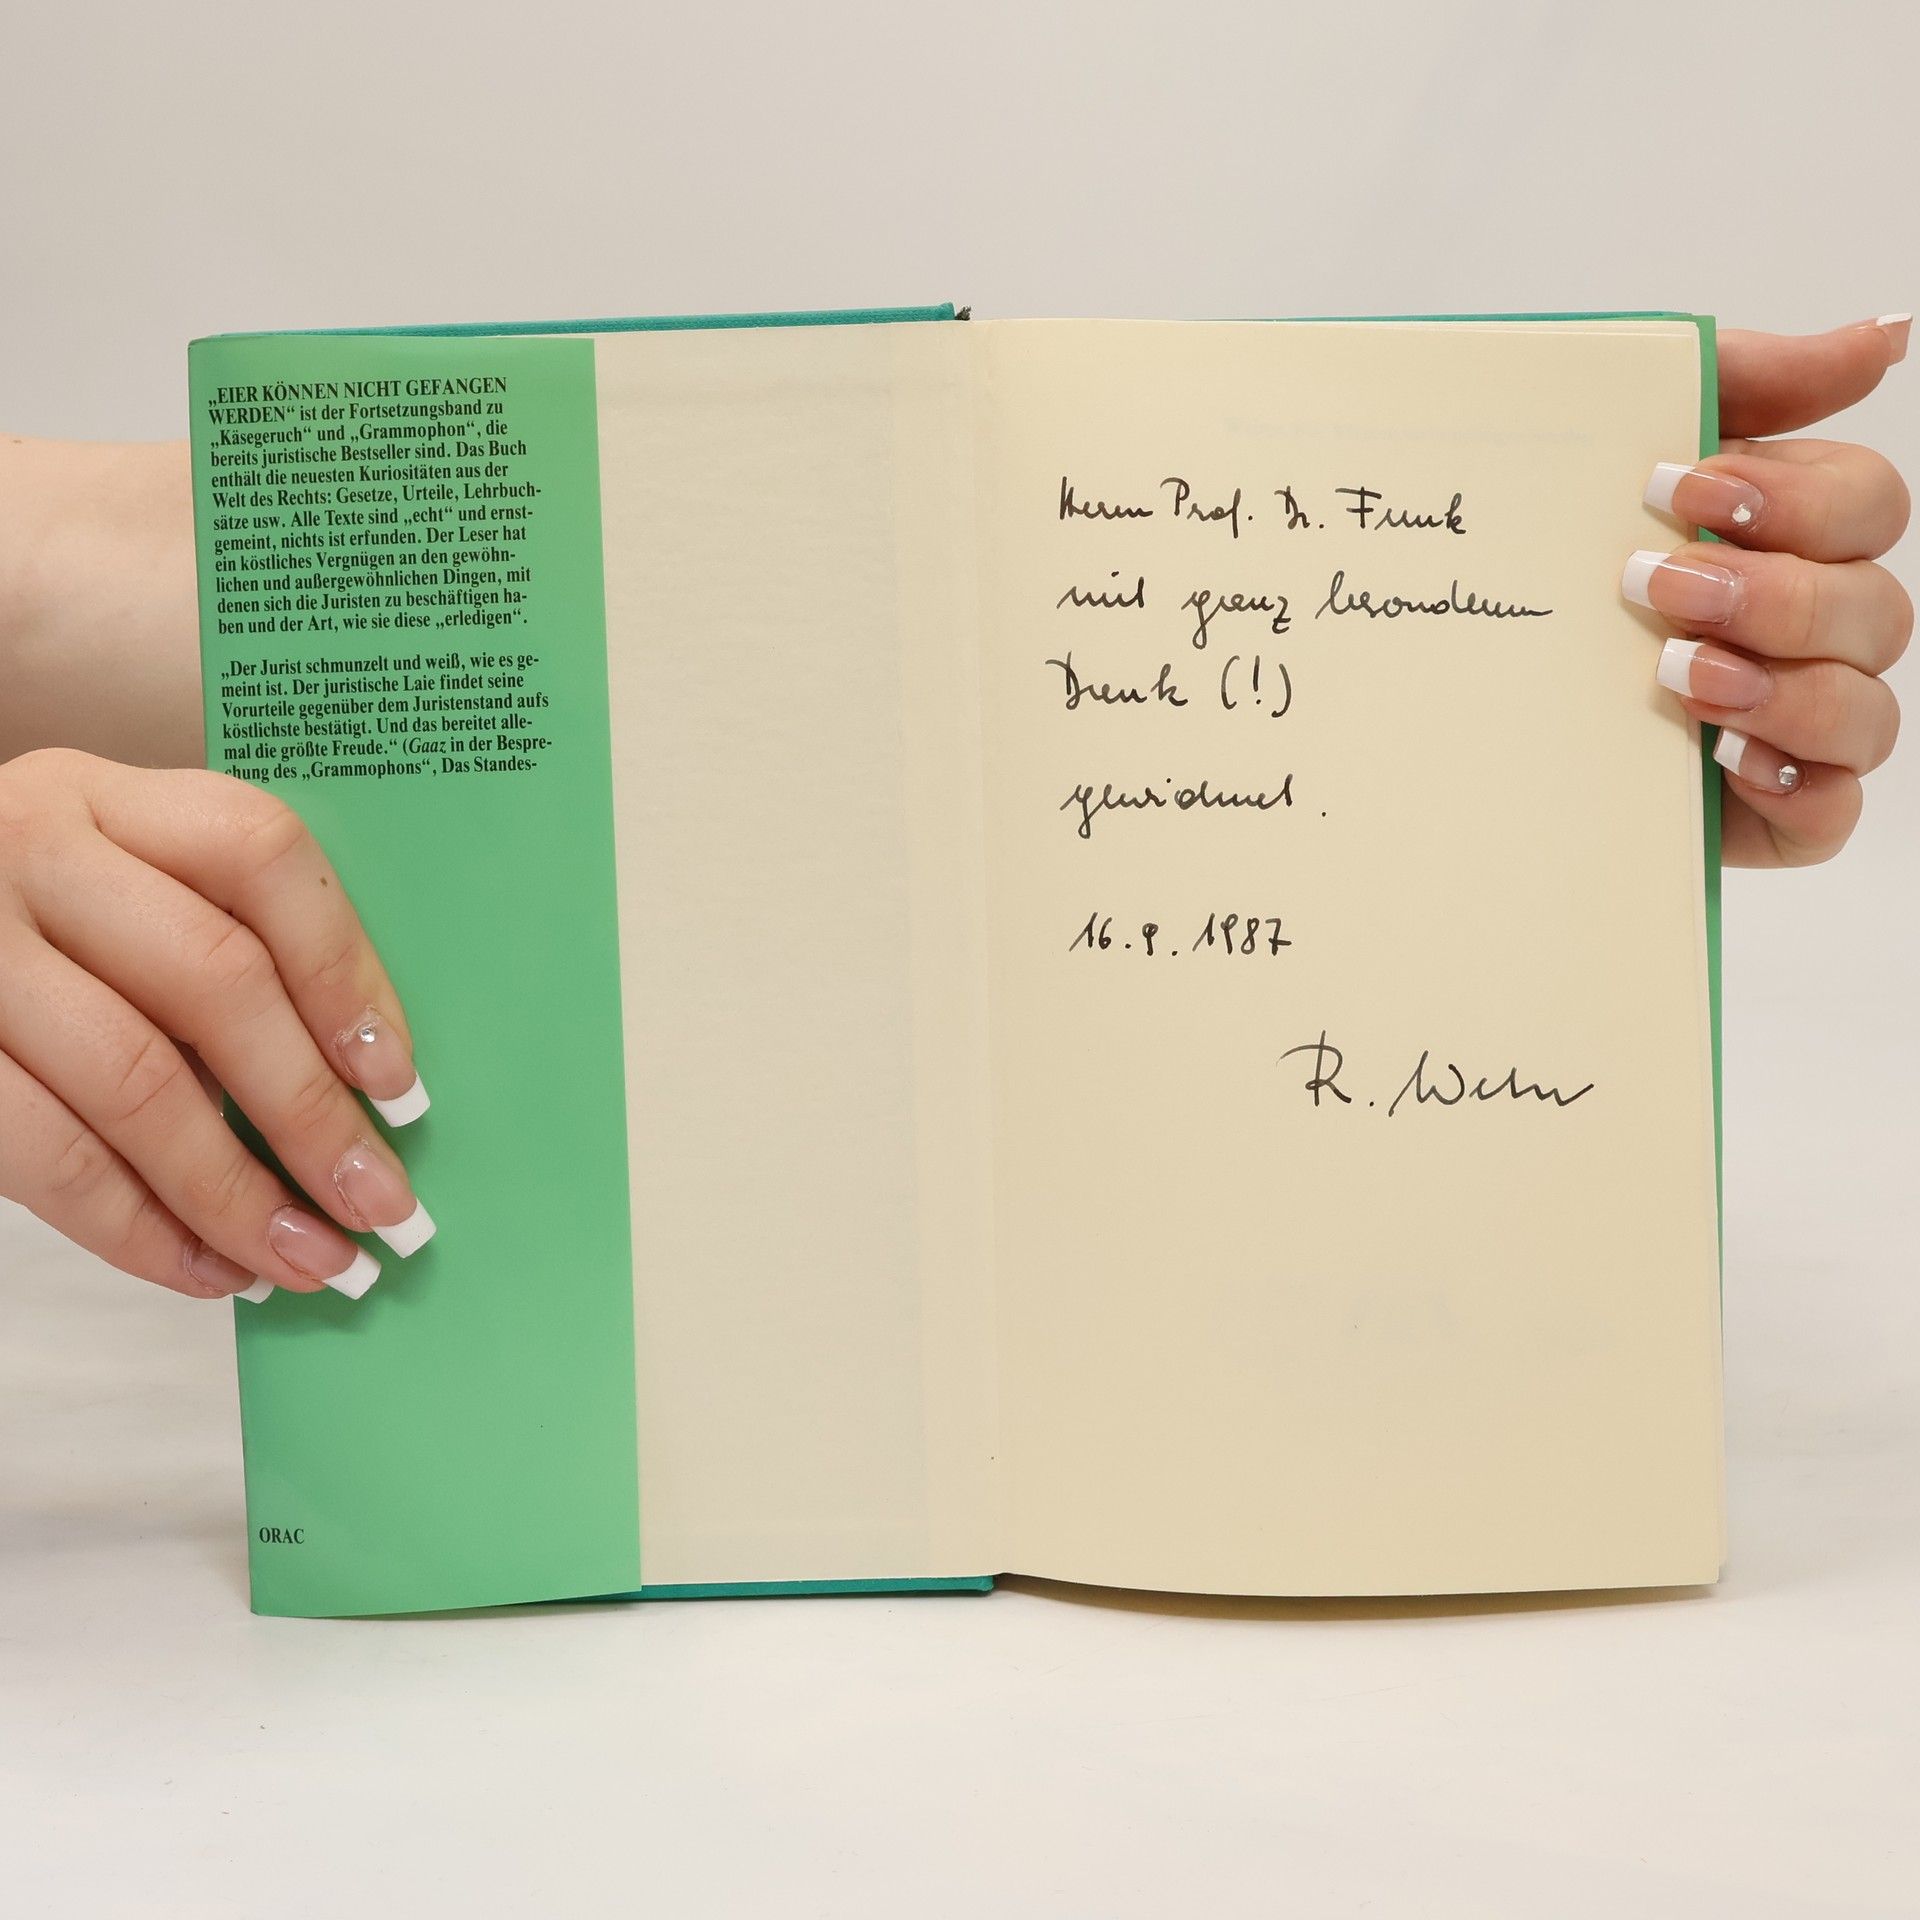 „EIER KÖNNEN NICHT GEFANGEN
WERDEN“ ist der Fortsetzungsband zu
„Käsegeruch“ und „Grammophon“, die
bereits juristische Bestseller sind. Das Buch
enthält die neuesten Kuriositäten aus der
Welt des Rechts: Gesetze, Urteile, Lehrbuch-
sätze usw. Alle Texte sind „echt“ und ernst-
gemeint, nichts ist erfunden. Der Leser hat
ein köstliches Vergnügen an den gewöhn-
lichen und außergewöhnlichen Dingen, mit
denen sich die Juristen zu beschäftigen ha-
ben und der Art, wie sie diese „erledigen“.
„Der Jurist schmunzelt und weiß, wie es ge-
meint ist. Der juristische Laie findet seine
Vorurteile gegenüber dem Juristenstand aufs
köstlichste bestätigt. Und das bereitet alle-
mal die größte Freude.“ (Gaaz in der Bespre-
chung des „Grammophons“, Das Standes-
ORAC
Herrn Prof. Dr. Funk
mit ganz besonderem
Dank (!)
gewidmet.
16.9.1987
R.